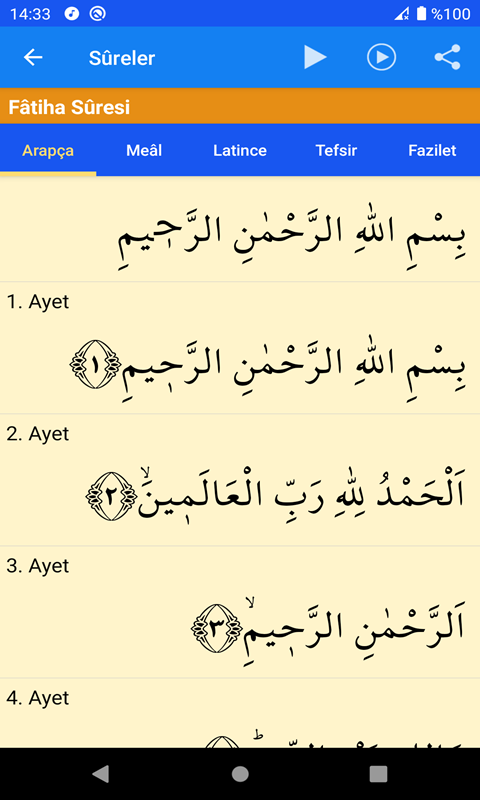 14:33 %100
Sûreler
Fâtiha Sûresi
Arapça Meâl Latince Tefsir Fazilet
بِسْمِ اللّٰهِ الرَّحْمٰنِ الرَّحٖيمِ
1. Ayet
بِسْمِ اللّٰهِ الرَّحْمٰنِ الرَّحٖيمِ ١
2. Ayet
اَلْحَمْدُ لِلّٰهِ رَبِّ الْعَالَمٖينَۙ ٢
3. Ayet
اَلرَّحْمٰنِ الرَّحٖيمِۙ ٣
4. Ayet